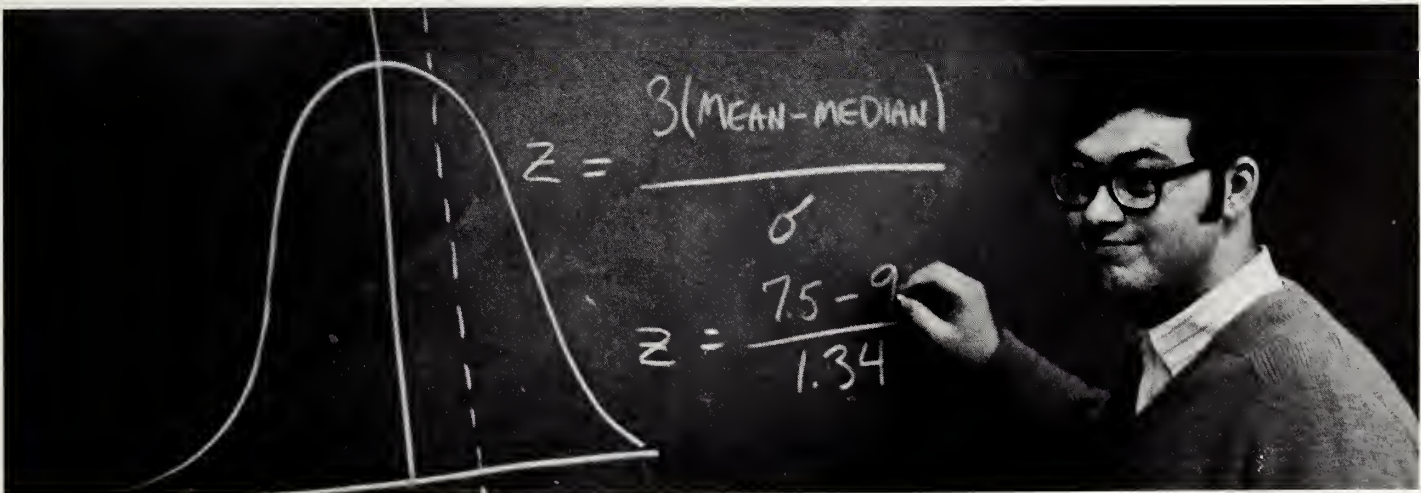 3(MEAN-MEDIAN)
Z =
σ
7.5-9
Z =
1.34